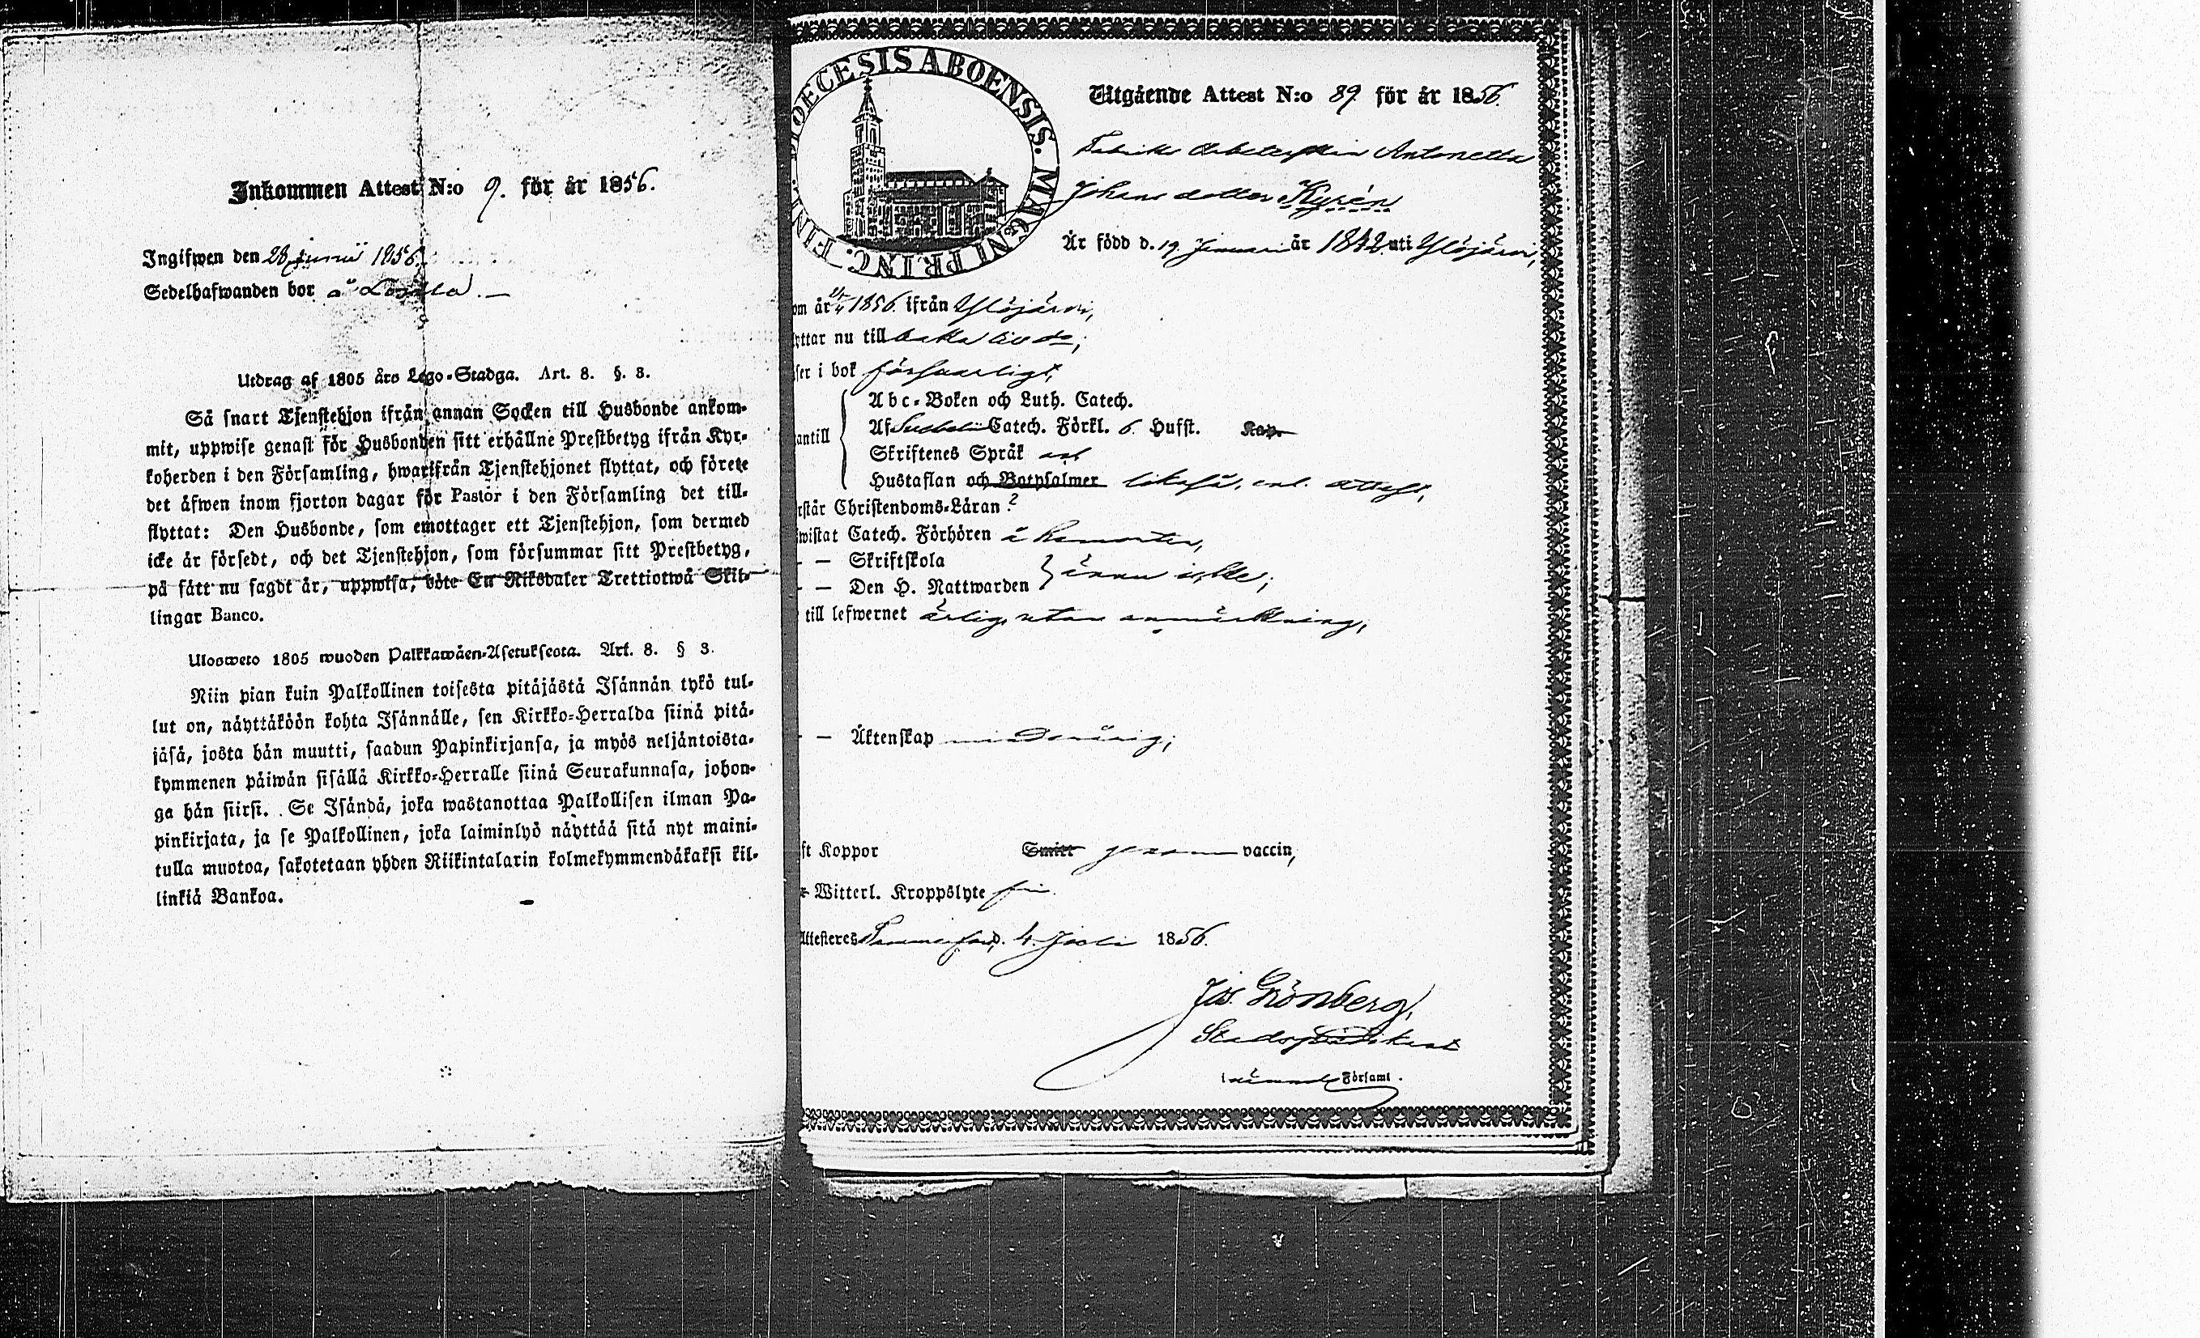 Inkommen Attest N:o 9. för år 1856.
Ingifwen den 28 junii 1856.
Sedelhafwanden bor å
Utdrag af 1805 års Lego-Stadga. Art. 8. §. 3.
Så snart Tjenstehjon ifrån annan Socken till Husbonde ankom-
mit, uppwise genast för Husbonden sitt erhållne Prestbetyg ifrån Kyr-
koherden i den Församling, hwarifrån Tjenstehjonet flyttat, och förete
det äfwen inom fjorton dagar för Pastor i den Församling det till-
flyttat: Den Husbonde, som emottager ett Tjenstehjon, som dermed
icke är försedt, och det Tjenstehjon, som försummar sitt Prestbetyg,
på sätt nu sagdt är, uppwisa, böte En Riksdaler Trettiotwå Skil-
lingar Banco.
Ulosweto 1805 wuoden Palkkawäen-Asetuksesta. Art. 8. § 3.
Niin pian kuin Palkollinen toisesta pitäjästä Isännän tykö tul-
lut on, näyttäköön kohta Isännälle, sen Kirkko-Herralda siinä pitä-
jäsä, josta hän muutti, saadun Papinkirjansa, ja myös neljäntoista-
kymmenen päiwän sisällä Kirkko-Herralle siinä Seurakunnasa, johon-
ga hän siirsi. Se Isändä, joka wastanottaa Palkollisen ilman Pa-
pinkirjata, ja se Palkollinen, joka laiminlyö näyttää sitä nyt maini-
tulla muotoa, sakotetaan yhden Riikintalarin kolmekymmendäkaksi kil-
linkiä Bankoa.
DIOECESIS ABOENSIS. MAGNI PRINC. FINL.
Utgående Attest N:o 89 för år 1856.
Fabriks Arbeterskan Antonetta
Johans dotter Kyrén
Är född d. 19 Januari år 1842 uti Ylöjärvi,
om år 1856. ifrån Ylöjärvi,
yttar nu till baka
ser i bok försvarligt,
antill
Abc-Boken och Luth. Catech.
Af Catech. Förkl. 6 Hufst. Kap.
Skriftenes Språk
Hustaflan och Botpsalmer likaså, enl. attest,
rstår Christendoms-Läran ?
wistat Catech. Förhören å hemorten,
– – Skriftskola
– – Den H. Nattwarden } ännu icke,
till lefwernet ärlig, utan anmärkning,
– – Äktenskap minderårig,
ft Koppor Smitt genom vaccin,
Witterl. Kroppslyte fri
Attesteres Tammerfors d. 4 Juli 1856.
Jos. Grönberg,
Stads
Församl.